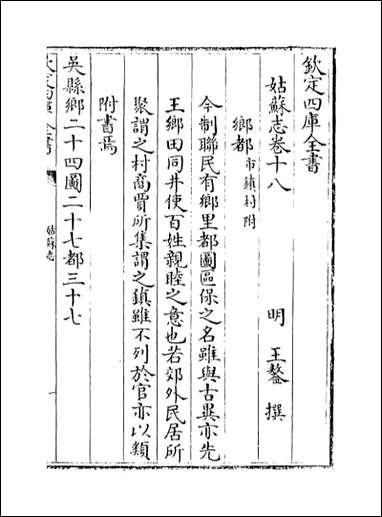 欽定四庫全書
姑蘇志卷十八
明 王鏊 撰
鄉都市鎮村附
今制聯民有鄉里都圖區保之名雖與古異亦先
王鄉田同井使百姓親睦之意也若郊外民居所
聚謂之村商賈所集謂之鎮雖不列於官亦以類
附書焉
吳縣鄉二十四圖二十七都三十七
欽定四庫全書
姑蘇志